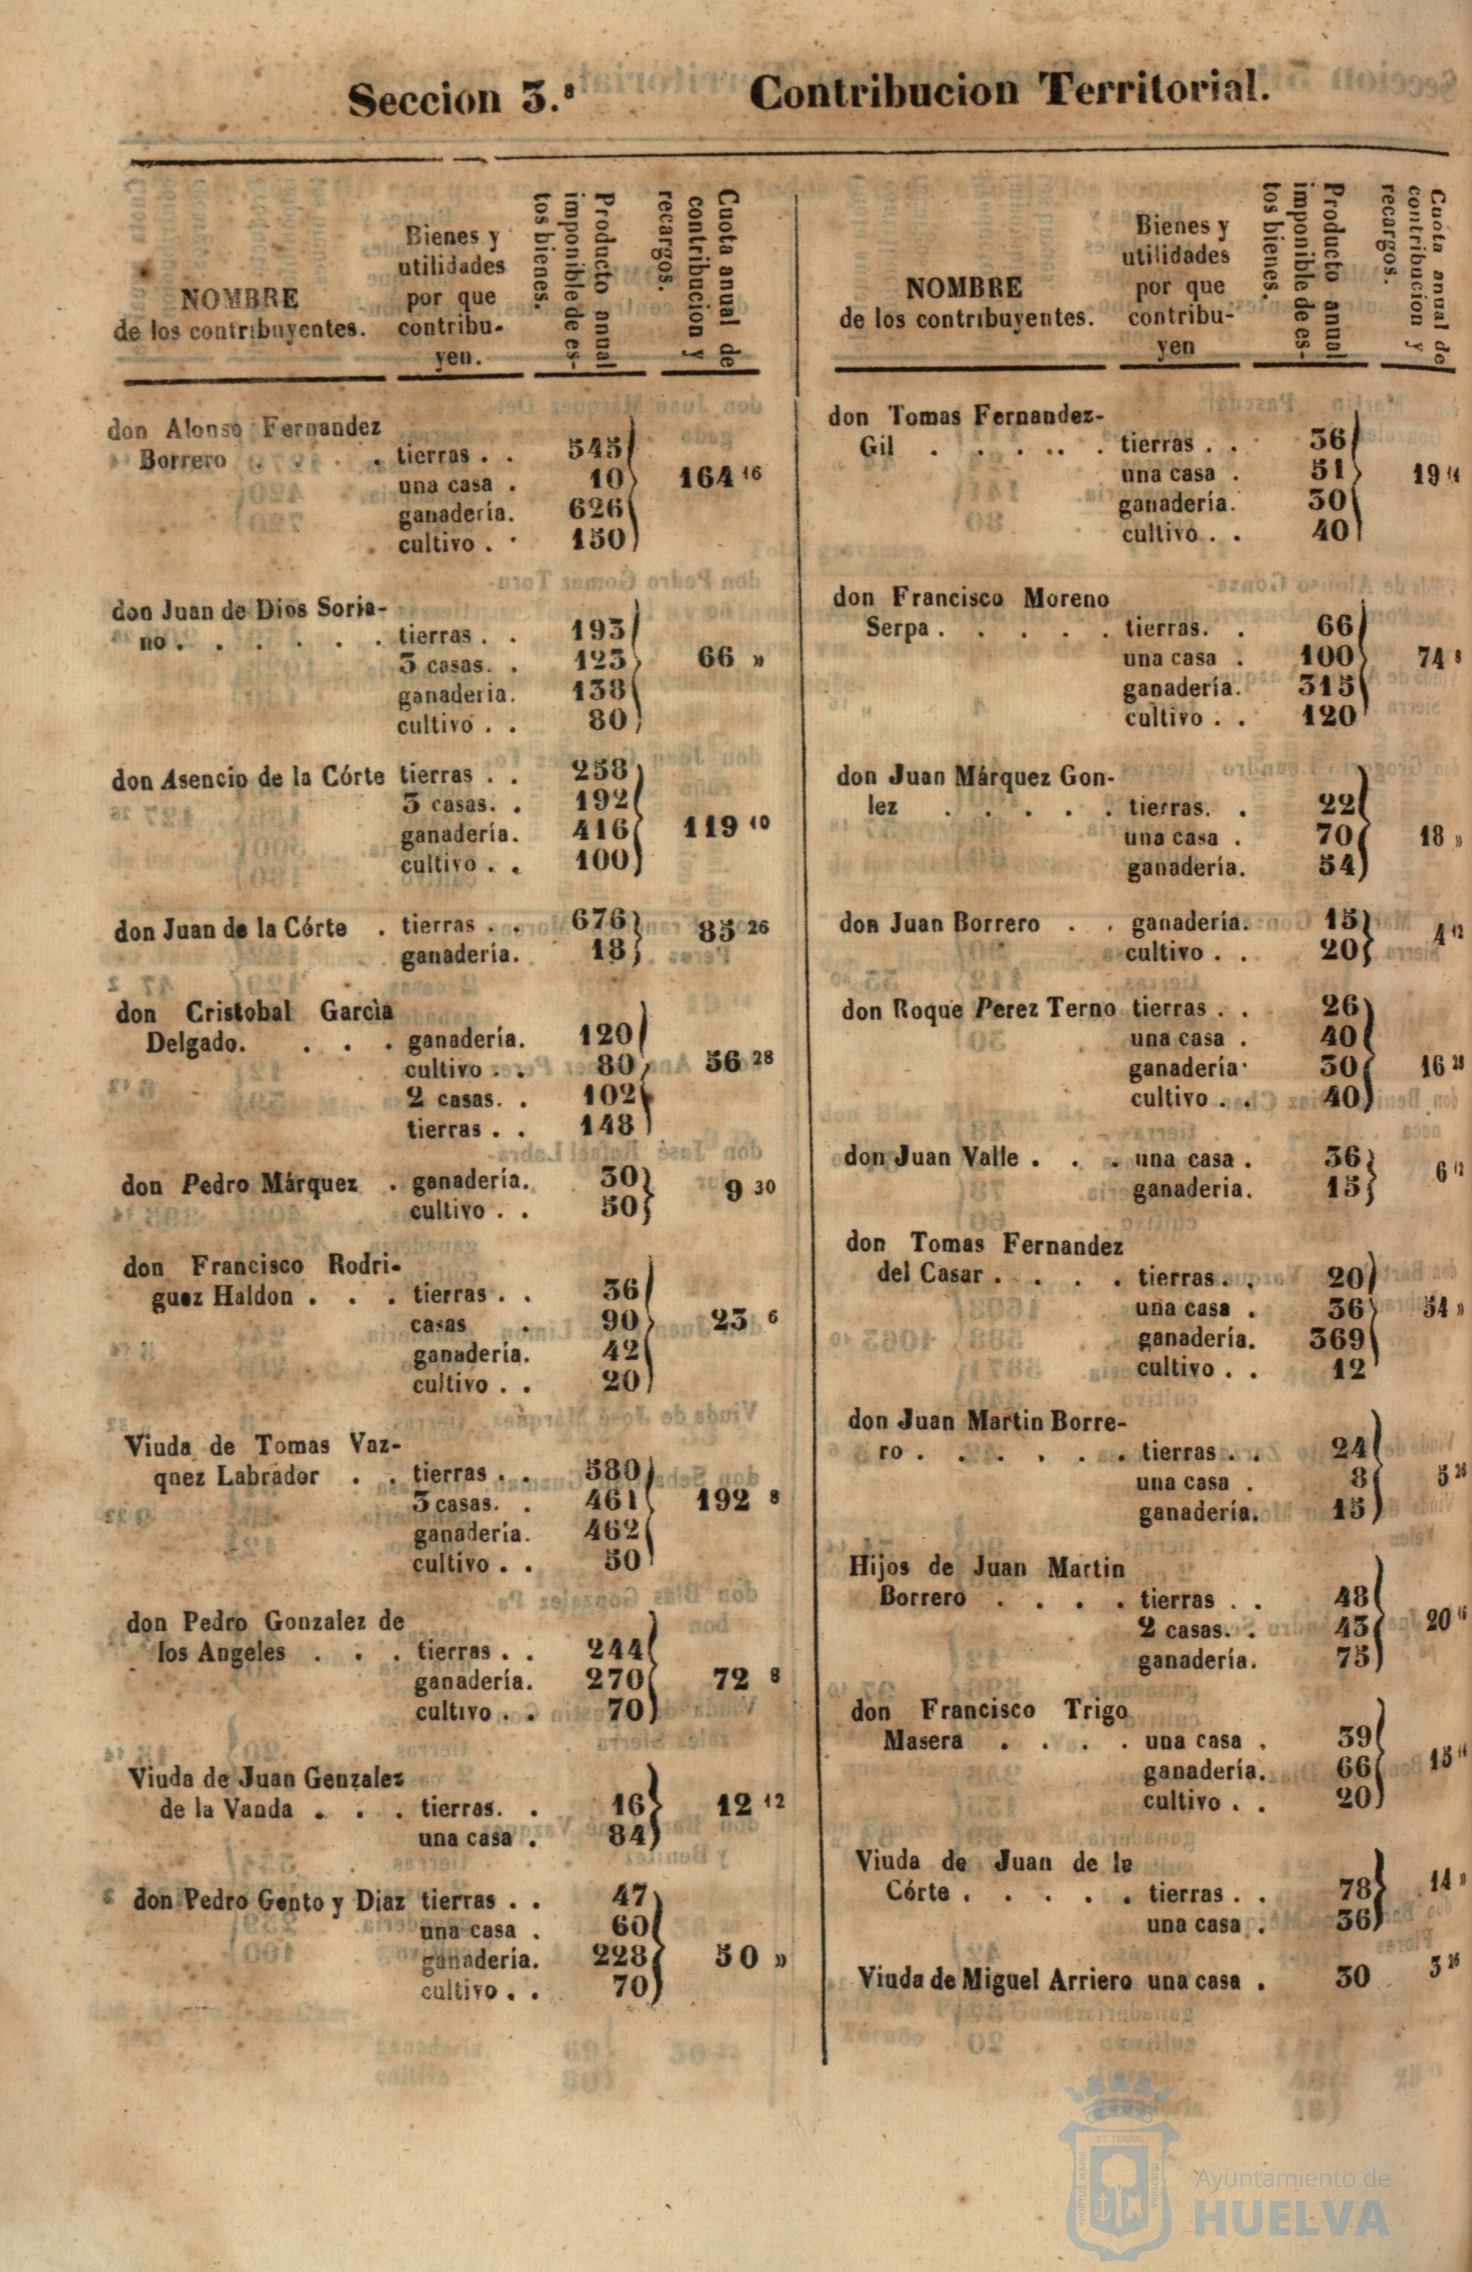 Seccion 3.ª
Contribucion Territorial.
NOMBRE
de los contribuyentes.
Bienes y
utilidades
por que
contribu-
yen.
Producto anual
imponible de es-
tos bienes.
Cuota anual de
contribucion y
recargos.
don Alonso Fernandez
Borrero . . . . tierras . . 545
una casa . 10 164 16
ganadería. 626
cultivo . . 150
don Juan de Dios Soria-
no . . . . . . tierras . . 193
3 casas. . 123 66 »
ganaderia. 138
cultivo . . 80
don Asencio de la Córte tierras . . 258
3 casas. . 192
ganadería. 416 119 10
cultivo . . 100
don Juan de la Córte . tierras . . 676 85 26
ganadería. 18
don Cristobal Garcìa
Delgado. . . . ganadería. 120
cultivo . . 80 56 28
2 casas. . 102
tierras . . 148
don Pedro Márquez . ganadería. 30 9 30
cultivo . . 50
don Francisco Rodri-
guez Haldon . . . tierras . . 36
casas . 90 23 6
ganadería. 42
cultivo . . 20
Viuda de Tomas Vaz-
quez Labrador . . tierras . . 580
3 casas. . 461 192 8
ganadería. 462
cultivo . . 50
don Pedro Gonzalez de
los Angeles . . . tierras . . 244
ganadería. 270 72 8
cultivo . . 70
Viuda de Juan Genzalez
de la Vanda . . . tierras. . 16 12 12
una casa . 84
don Pedro Gento y Diaz tierras . . 47
una casa . 60
ganadería. 228 50 »
cultivo . . 70
NOMBRE
de los contribuyentes.
Bienes y
utilidades
por que
contribu-
yen
Producto anual
imponible de es-
tos bienes.
Cuota anual de
contribucion y
recargos.
don Tomas Fernandez-
Gil . . . . . . tierras . . 36
una casa . 51 19 14
ganadería. 30
cultivo . . 40
don Francisco Moreno
Serpa . . . . . tierras. . 66
una casa . 100 74 8
ganadería. 315
cultivo . . 120
don Juan Márquez Gon-
lez . . . . . tierras. . 22
una casa . 70 18 »
ganadería. 54
don Juan Borrero . . ganadería. 15 4 12
cultivo . . 20
don Roque Perez Terno tierras . . 26
una casa . 40
ganadería. 30 16 28
cultivo . . 40
don Juan Valle . . . una casa . 36 6 12
ganaderia. 15
don Tomas Fernandez
del Casar . . . . tierras . . 20
una casa . 36 54 »
ganadería. 369
cultivo . . 12
don Juan Martin Borre-
ro . . . . . . tierras . . 24
una casa . 8 5 26
ganadería. 15
Hijos de Juan Martin
Borrero . . . . tierras . . 48
2 casas. . 43 20 16
ganadería. 75
don Francisco Trigo
Masera . . . . una casa . 39
ganadería. 66 15 14
cultivo . . 20
Viuda de Juan de la
Córte . . . . . tierras . . 78 14 »
una casa . 36
Viuda de Miguel Arriero una casa . 30 3 26
Ayuntamiento de
HUELVA